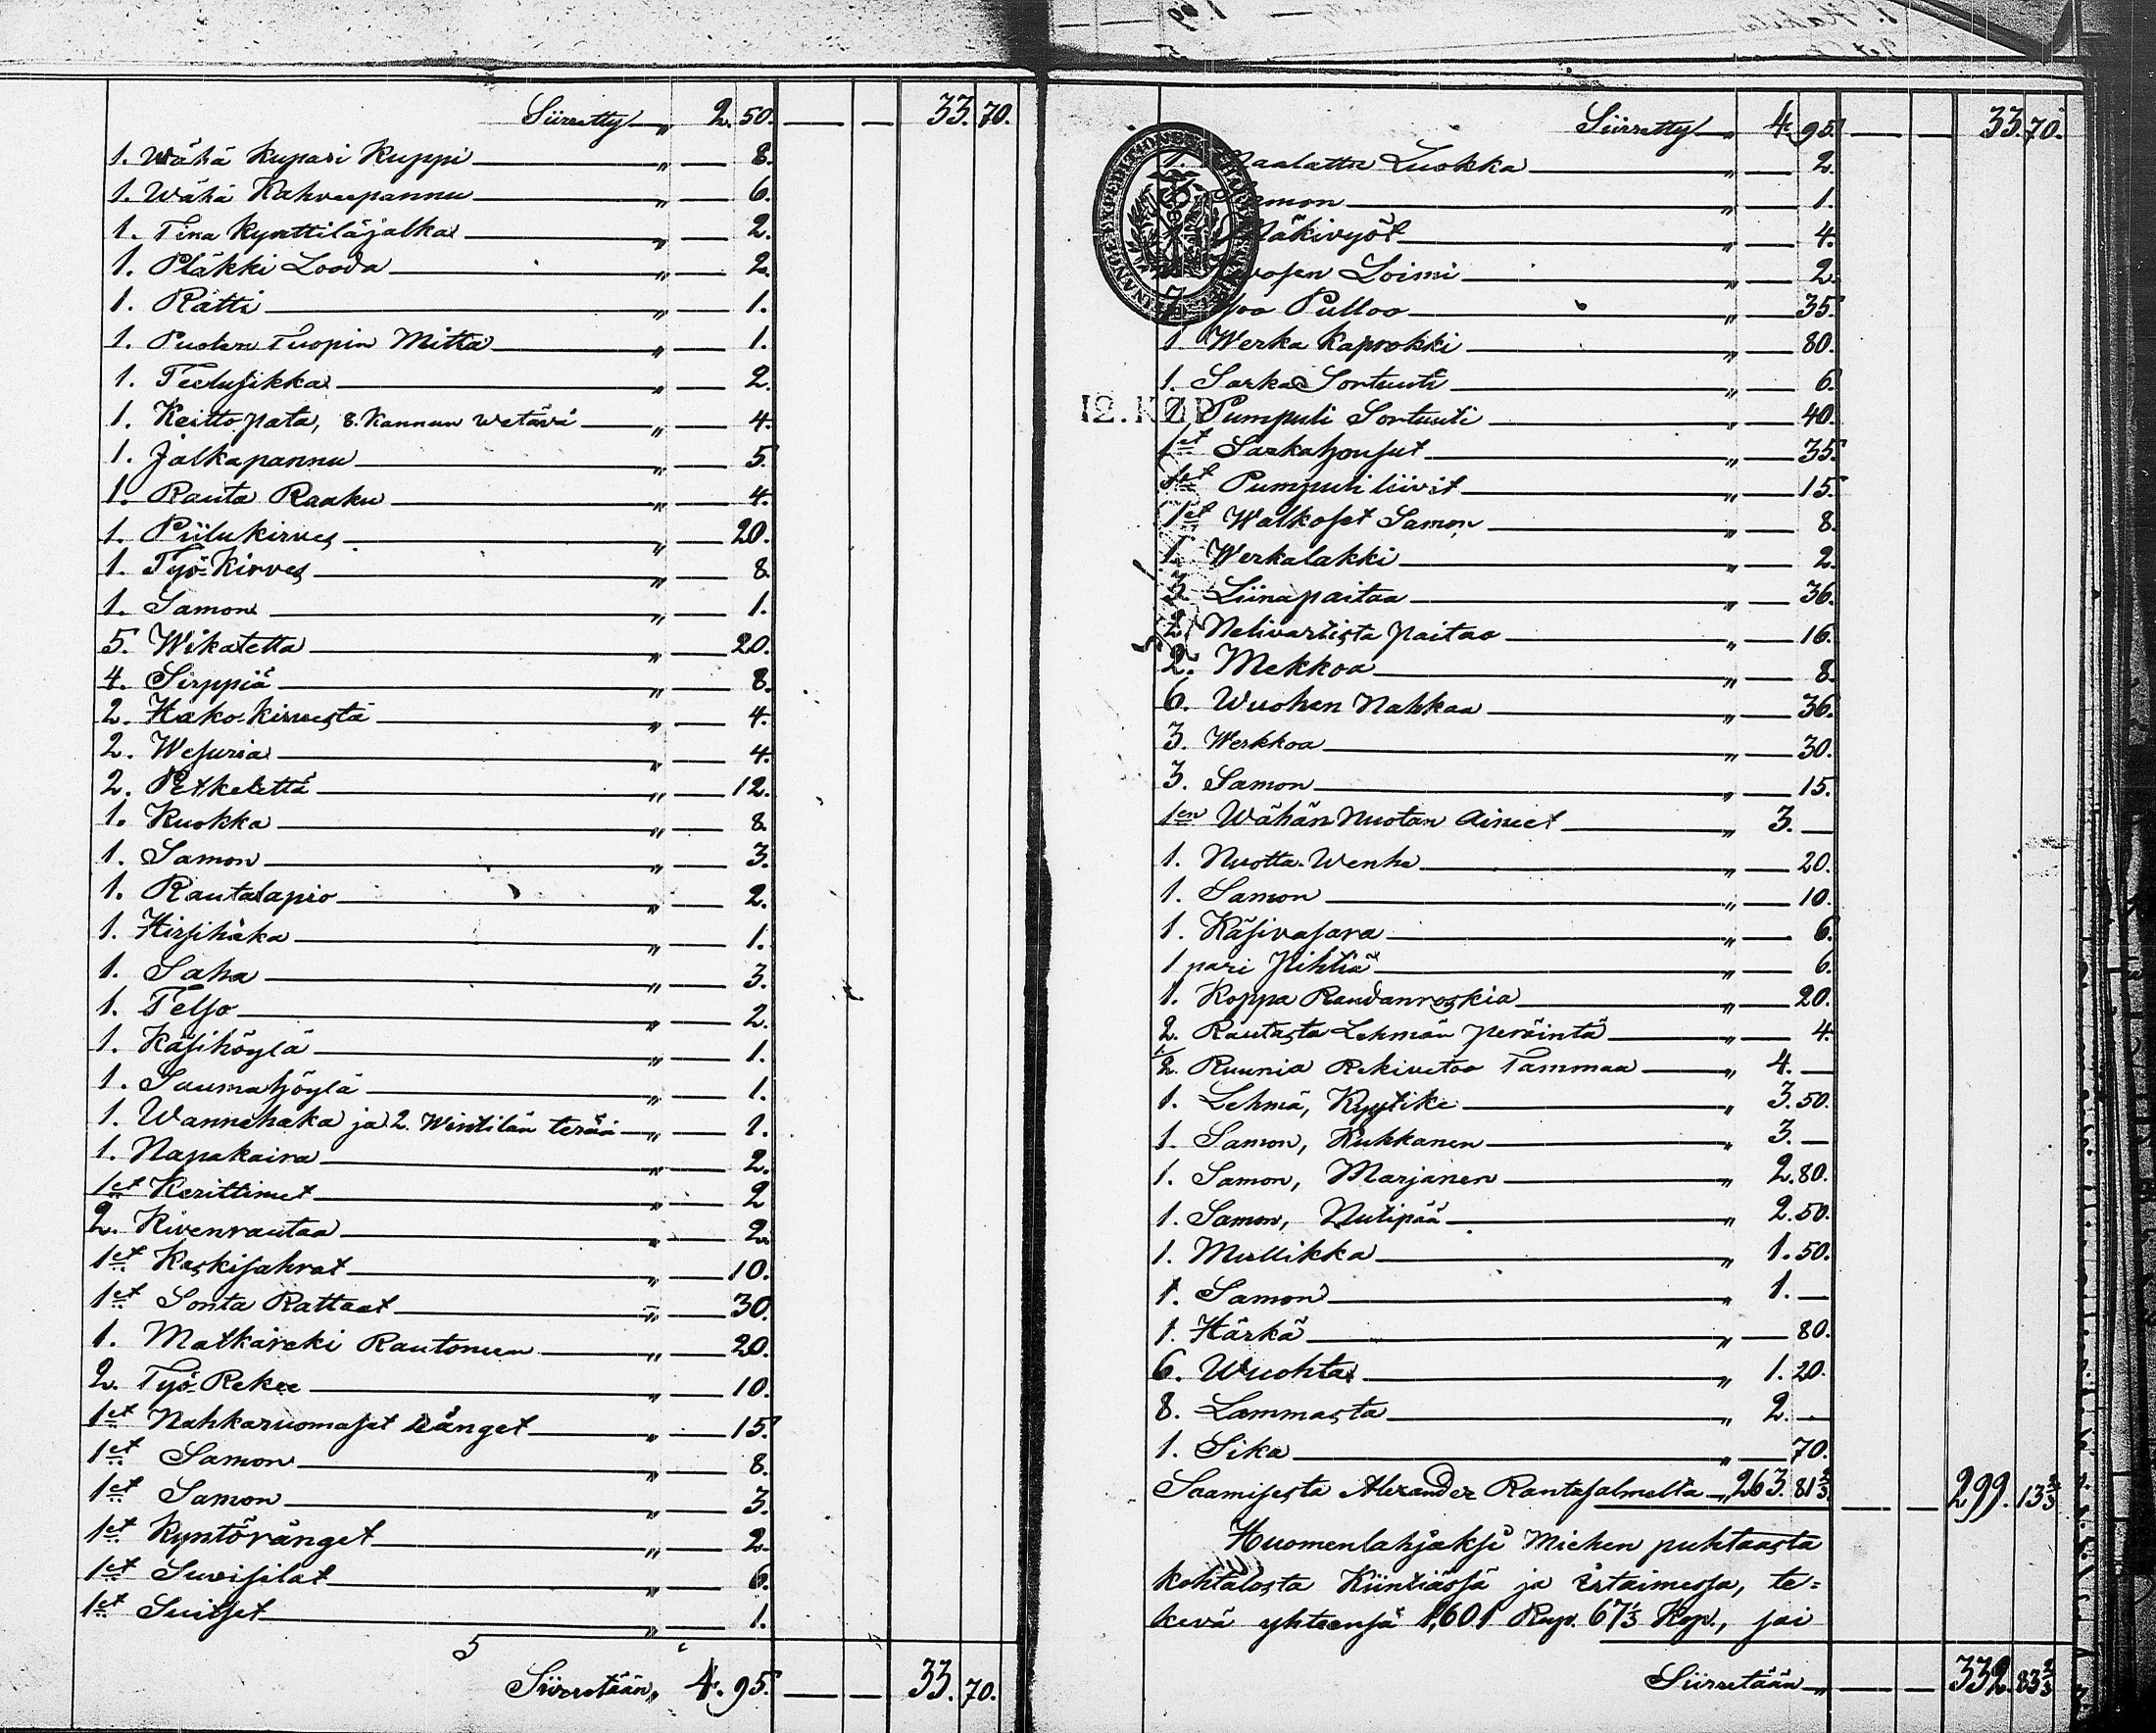 Siirretty „ 2. 50. — — 33. 70.
1. Wähä Kupari Kuppi „ — 8.
1. Wähä Kahveepannu „ — 6.
1. Tina Kynttiläjalka „ — 2.
1. Pläkki Looda „ — 2.
1. Rätti „ — 1.
1. Puolen Tuopin Mitta „ — 1.
1. Teelusikka „ — 2.
1. Keitto pata, 8. Kannun wetävä „ — 4.
1. Jalkapannu „ — 5.
1. Rauta Raaku „ — 4.
1. Piilukirves „ — 20.
1. Työ-Kirves „ — 8.
1. Samon „ — 1.
5. Wikatetta „ — 20.
4. Sirppiä „ — 8.
2. Hako-kirvestä „ — 4.
2. Wesuria „ — 4.
2. Petkelettä „ — 12.
1. Kuokka „ — 8.
1. Samon „ — 3.
1. Rautalapio „ — 2.
1. Hirsihaka „ — 1.
1. Saha „ — 3.
1. Telso „ — 2.
1. Käsihöylä „ — 1.
1. Saumahöylä „ — 1.
1. Wannehaka ja 2. Wintilän terää „ — 1.
1. Napakaira „ — 2.
1et Kerittimet „ — 2
2. Kivenrautaa „ — 2.
1et Kaskisahrat „ — 10.
1et Sonta Rattaat „ — 30.
1. Matkareki Rautoneen „ — 20.
2. Työ-Rekee „ — 10.
1et Nahkaruomaset länget „ — 15.
1et Samon „ — 8.
1et Samon „ — 3.
1et Kyntöränget „ — 2.
1et Suvisilat „ — 6.
1et Suitset „ — 1.
Siirretään „ 4. 95. — — 33. 70.
Siirretty „ 4. 95. — — 33. 70.
1. Maalattu Luokka „ — 2.
Samon „ — 1.
Mäkivyöt „ — 4.
Hevosen Loimi „ — 2.
Pulloo „ — 35.
1 Werka Kaprokki „ — 80.
1. Sarka Sortuuti „ — 6.
12.KOP
1. Pumpuli Sortuuti „ — 40.
1et Sarkahousut „ — 35.
1et Pumpuli liivit „ — 15.
1et Walkoset Samon „ — 8.
1. Werkalakki „ — 2.
3. Liinapaitaa „ — 36.
2. Nelivartista paitaa „ — 16.
2. Mekkoa „ — 8.
6. Wuohen Nahkaa „ — 36.
3. Werkkoa „ — 30.
3. Samon „ — 15.
1en Wähän Nuotan Aineet „ 3. —
1. Nuotta-Wenhe „ — 20.
1. Samon „ — 10.
1. Käsivasara „ — 6.
1 pari Pihtiä „ — 6.
1. Koppa Raudanroskia „ — 20.
2. Rautasta Lehmän peräintä „ — 4.
1/2. Ruunia Rekivetoo Tammaa „ 4. —
1. Lehmä, Kyytike „ 3. 50.
1. Samon, Kukkanen „ 3. —
1. Samon, Marjanen „ 2. 80.
1. Samon, Nutipää „ 2. 50.
1. Mullikka „ 1. 50.
1. Samon „ 1. —
1. Härkä „ — 80.
6. Wuohta „ 1. 20.
8. Lammasta „ 2. —
1. Sika „ — 70.
Saamisesta Alexander Rantasalmelta „ 263. 81 2/3 — — 299. 13 2/3
Huomenlahjaksi Miehen puhtaasta
kohtalosta Kiintiässä ja irtaimessa, te=
kevä yhteensä 1,601 Rup. 67 1/3 Kop., sai
Siirretään „ — — 332. 83 2/3